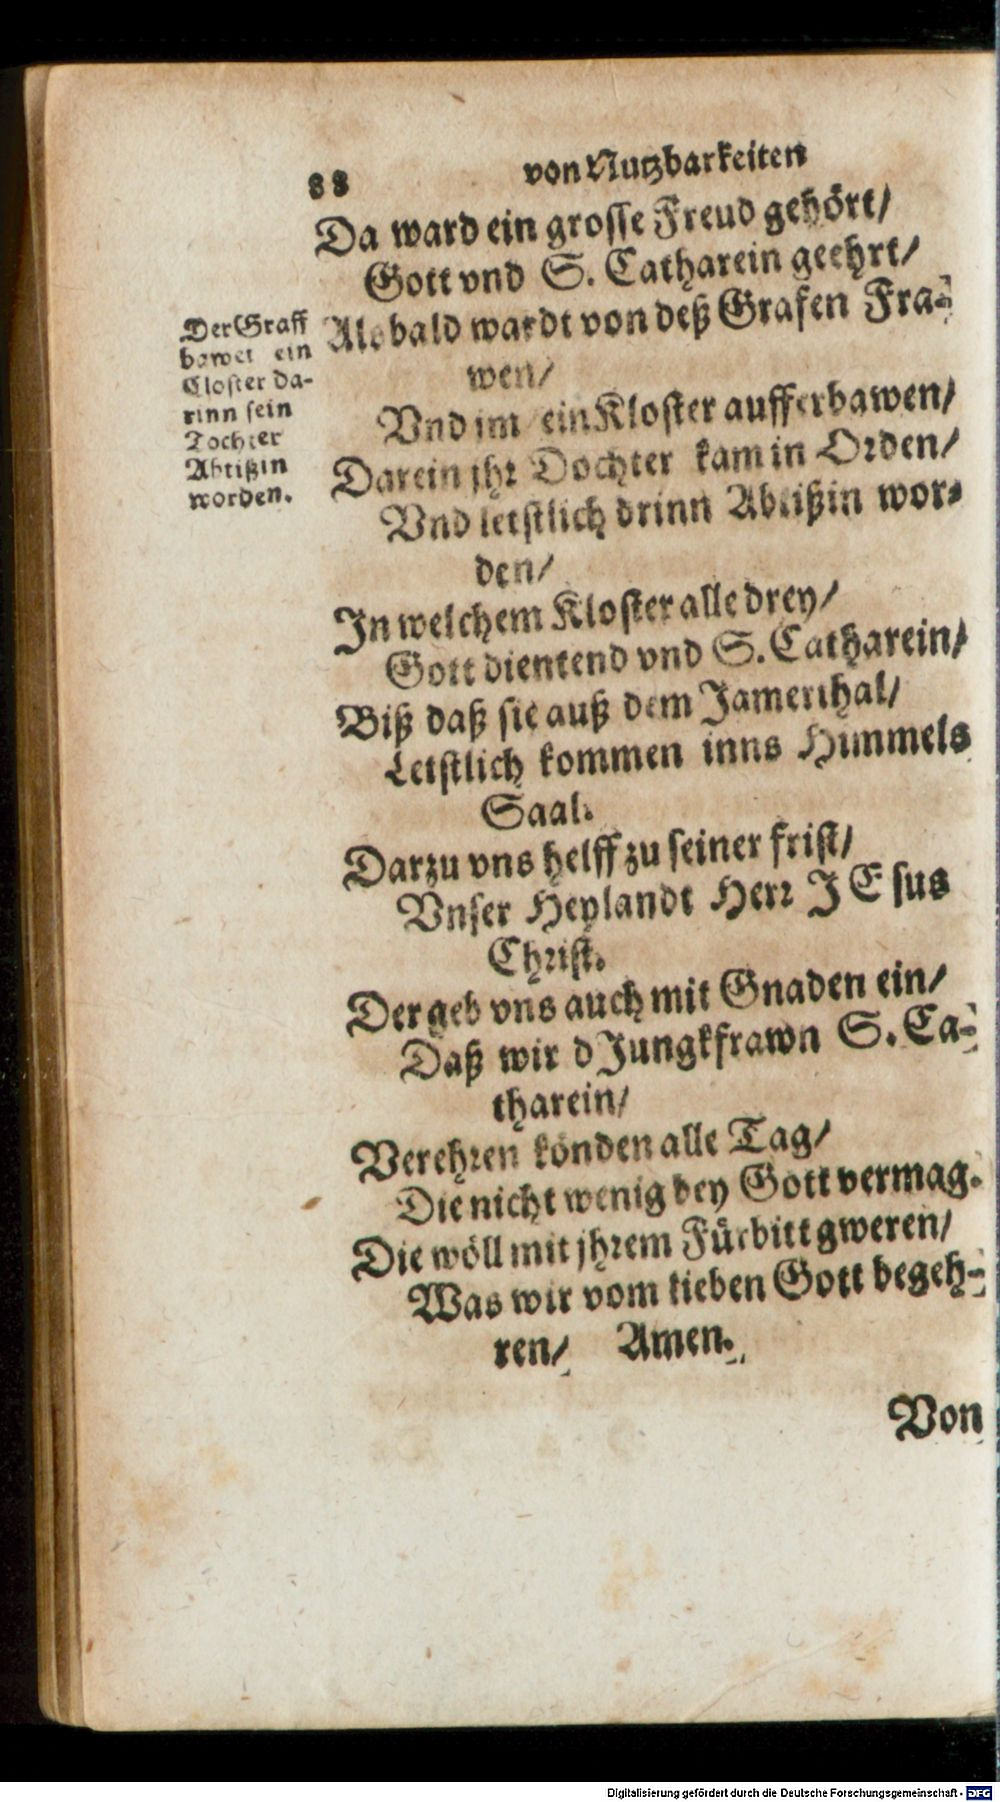 88 von Nutzbarkeiten
Da ward ein grosse Freud gehört/
Gott vnd S. Catharein geehrt/
Alsbald wardt von deß Grafen Fra-
wen/
Vnd im ein Kloster aufferbawen/
Darein jhr Dochter kam in Orden/
Vnd letstlich drinn Abtißin wor-
den/
In welchem Kloster alle drey/
Gott dientend vnd S. Catharein/
Biß daß sie auß dem Jamerthal/
Letstlich kommen inns Himmels
Saal.
Darzu vns helff zu seiner frist/
Vnser Heylandt Herr JEsus
Christ.
Der geb vns auch mit Gnaden ein/
Daß wir d Jungkfrawn S. Ca-
tharein/
Verehren könden alle Tag/
Die nicht wenig bey Gott vermag.
Die wöll mit jhrem Fürbitt gweren/
Was wir vom lieben Gott begeh-
ren/ Amen.
Von
Der Graff
bawet ein
Closter da-
rinn sein
Tochter
Abtißin
worden.
Digitalisierung gefördert durch die Deutsche Forschungsgemeinschaft - DFG